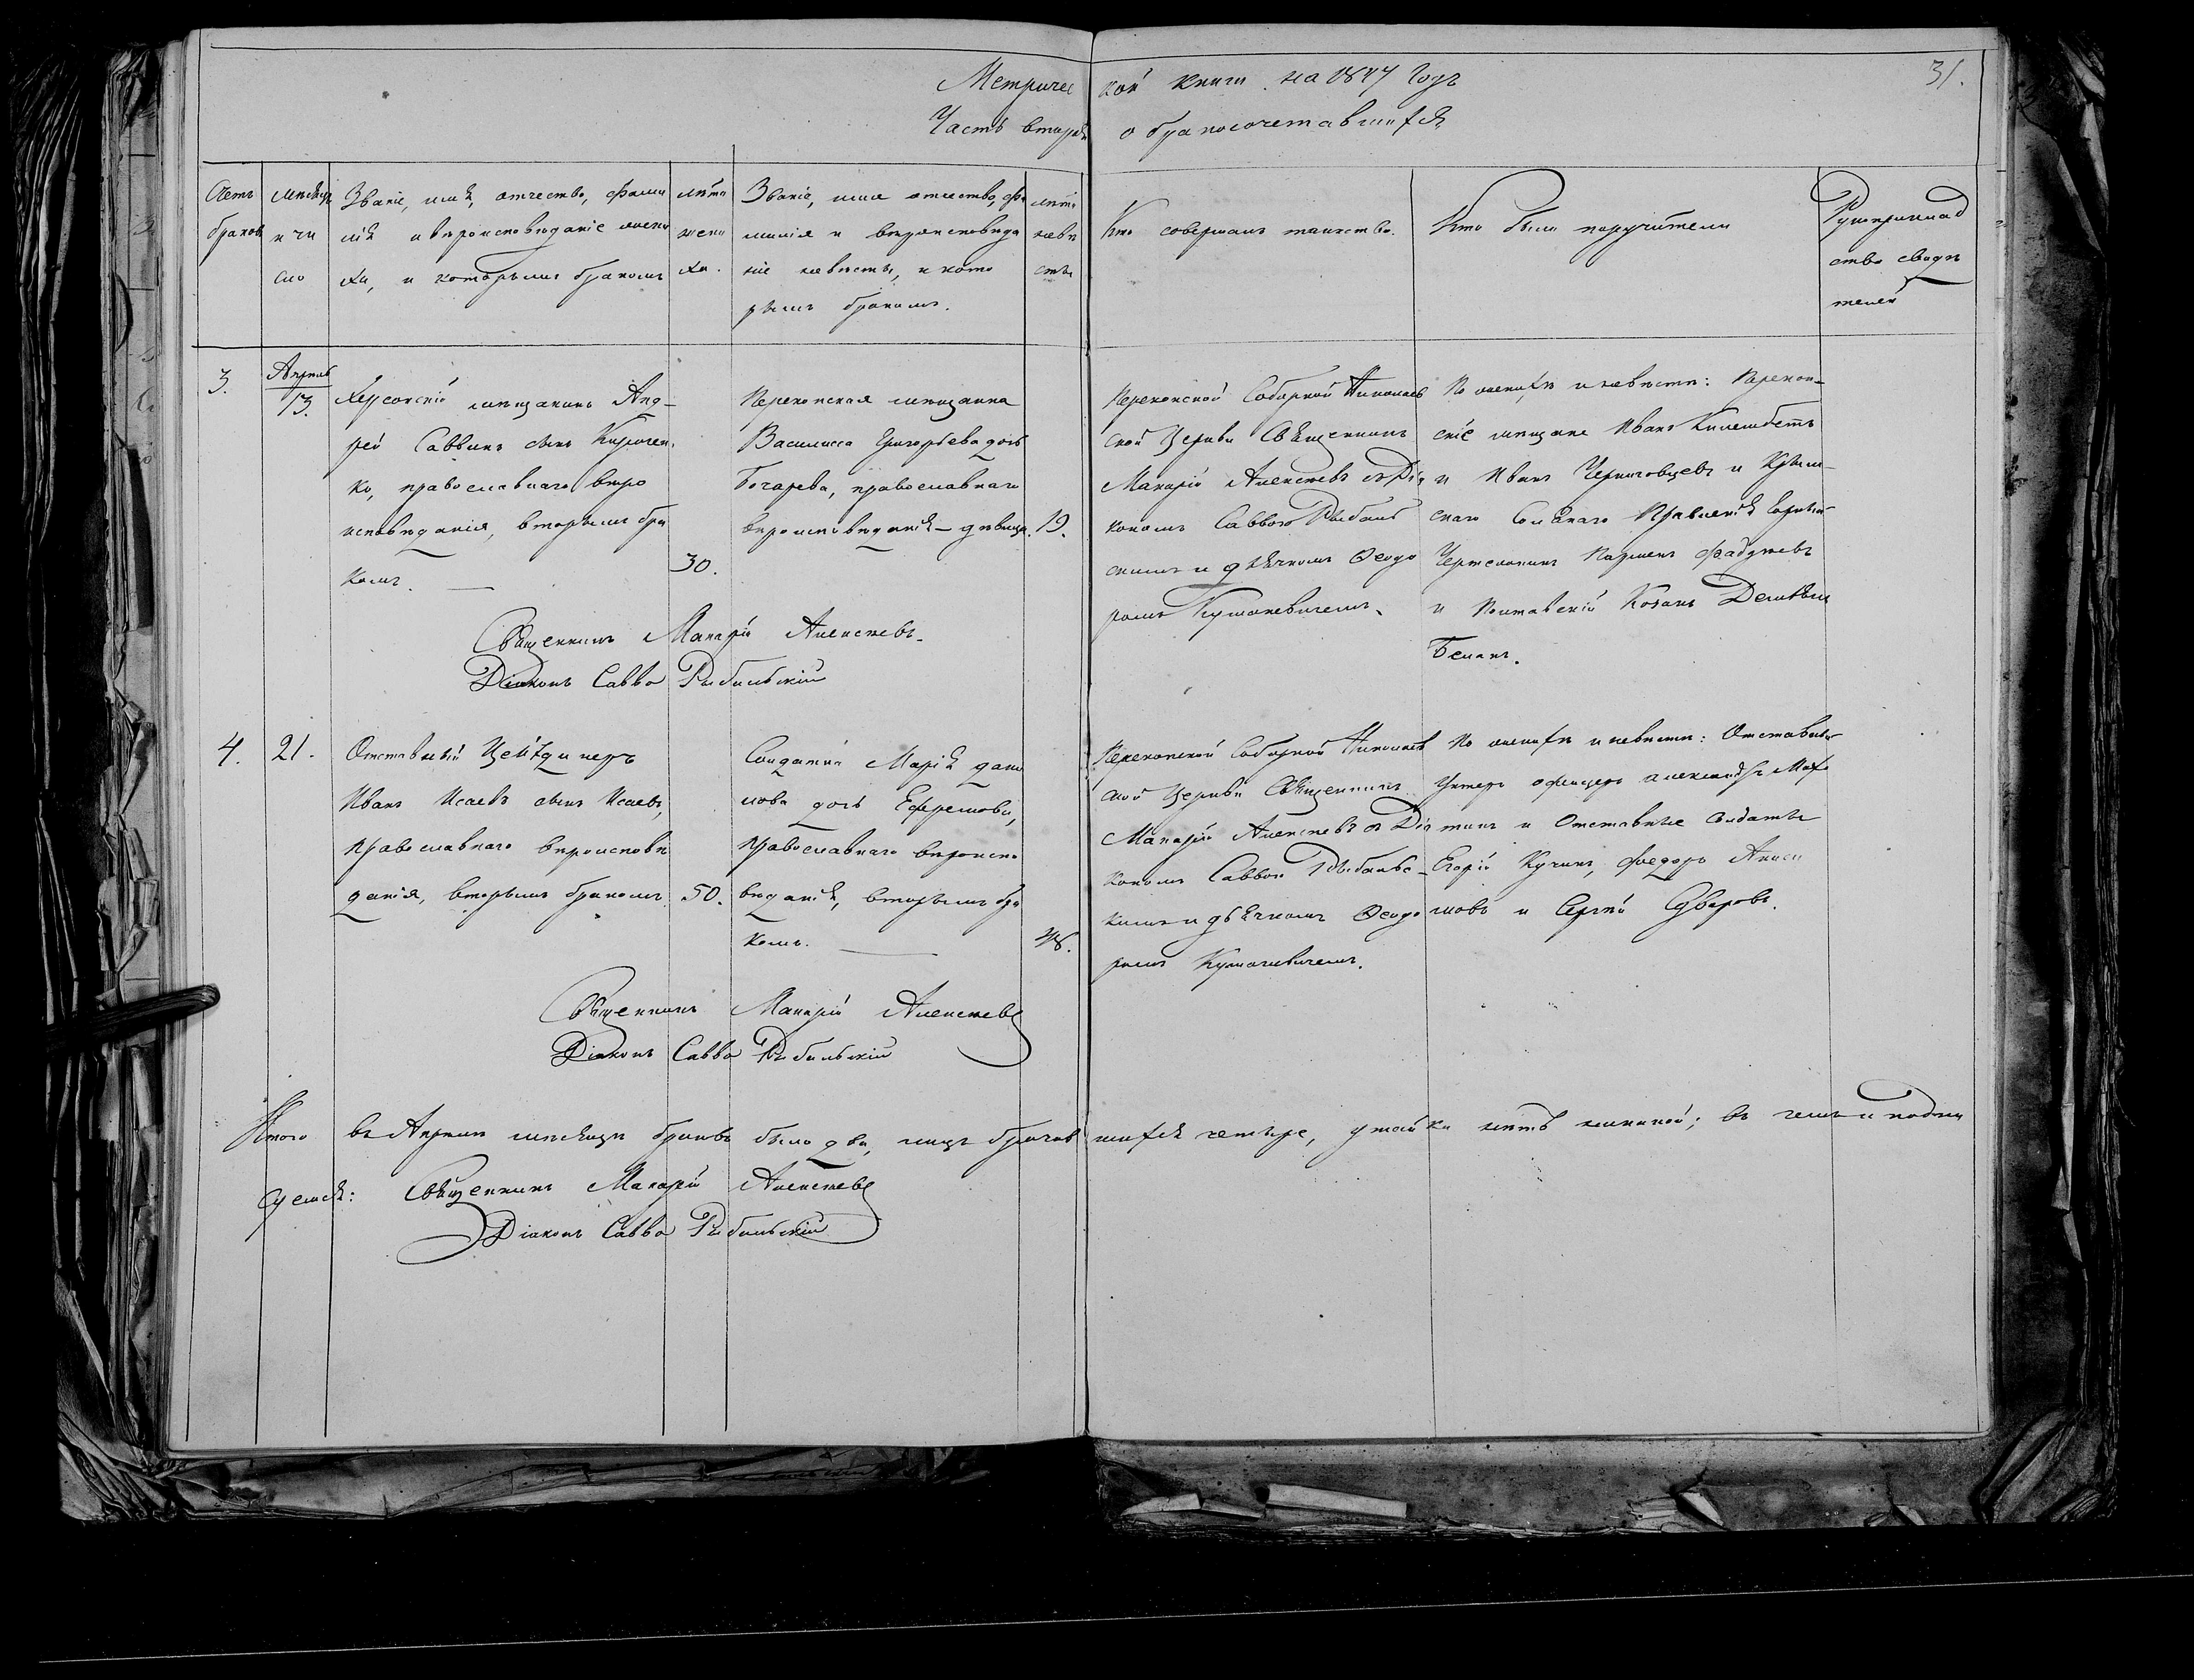 Метричес кой книги на 1847 Годъ
31.
Часть вторая о бракосочетавшихся
Счетъ браковъ
мѣсяцъ и чи сло
Званіе, имя, отчество, фами
лія и вѣроисповѣданіе жени
ха, и которымъ бракомъ
лѣта жени ха.
Званіе, имя отчество, фа
милія и вѣроисповѣда
ніе невѣсты, и кото
рымъ бракомъ.
лѣта невѣ сты
Кто совершалъ таинство.
Кто были поручители
Рукоприклад
ство свидѣ
телей
3.
Апрѣль
13.
Херсонскій мѣщанинъ Анд-
рей Саввинъ сынъ Киричен
ко, православнаго вѣро
исповѣданія, вторымъ бра
комъ.
30.
Перекопская мѣщанка
Василисса Григорьева дочь
Бочарева, православнаго
вѣроисповѣданія - дѣвица.
19.
Перекопской Соборной Николаев
ской Церкви Священникъ
Макарій Алексѣевъ съ Діа
кономъ Саввою Рыбаль
скимъ и дьячкомъ Ѳеодо
ромъ Кушакевичемъ.
По женихѣ и невѣстѣ: Перекоп-
скіе мѣщане Иванъ
и Иванъ Черниговцевъ и Крым-
скаго Солянаго Правленія
Чертежникъ
и Полтавскій Козакъ Демьянъ
Белакъ.
Священникъ Макарій Алексѣевъ.
Діаконъ Савва Рыбальскій
4.
21.
Отставной Цейхдинеръ
Иванъ Исаевъ сынъ Исаевъ,
православнаго вѣроисповѣ
данія, вторымъ бракомъ
50.
Солдатка Марія Дани
лова дочь Ефремова,
православнаго вѣроиспо
вѣданія, вторымъ бра
комъ.
48.
Перекопской Соборной Николаев
ской Церкви Священникъ
Макарій Алексѣевъ съ Діа
кономъ Саввою Рыбальс
кимъ и дьячкомъ Ѳеодо
ромъ Кушакевичемъ.
По женихѣ и невѣстѣ: Отставной
Унтеръ офицеръ Александръ
и Отставные Солдаты
Егорій Кучинъ, Федоръ Аниси
мовъ и Сергѣй
Священникъ Макарій Алексѣевъ
Діаконъ Савва Рыбальскій
Итого въ Апрѣлѣ мѣсяцѣ браковъ было два, лицъ брачив шихся четыре, утайки нѣтъ никакой; въ чемъ и подпи
суемся: Священникъ Макарій Алексѣевъ
Діаконъ Савва Рыбальскій